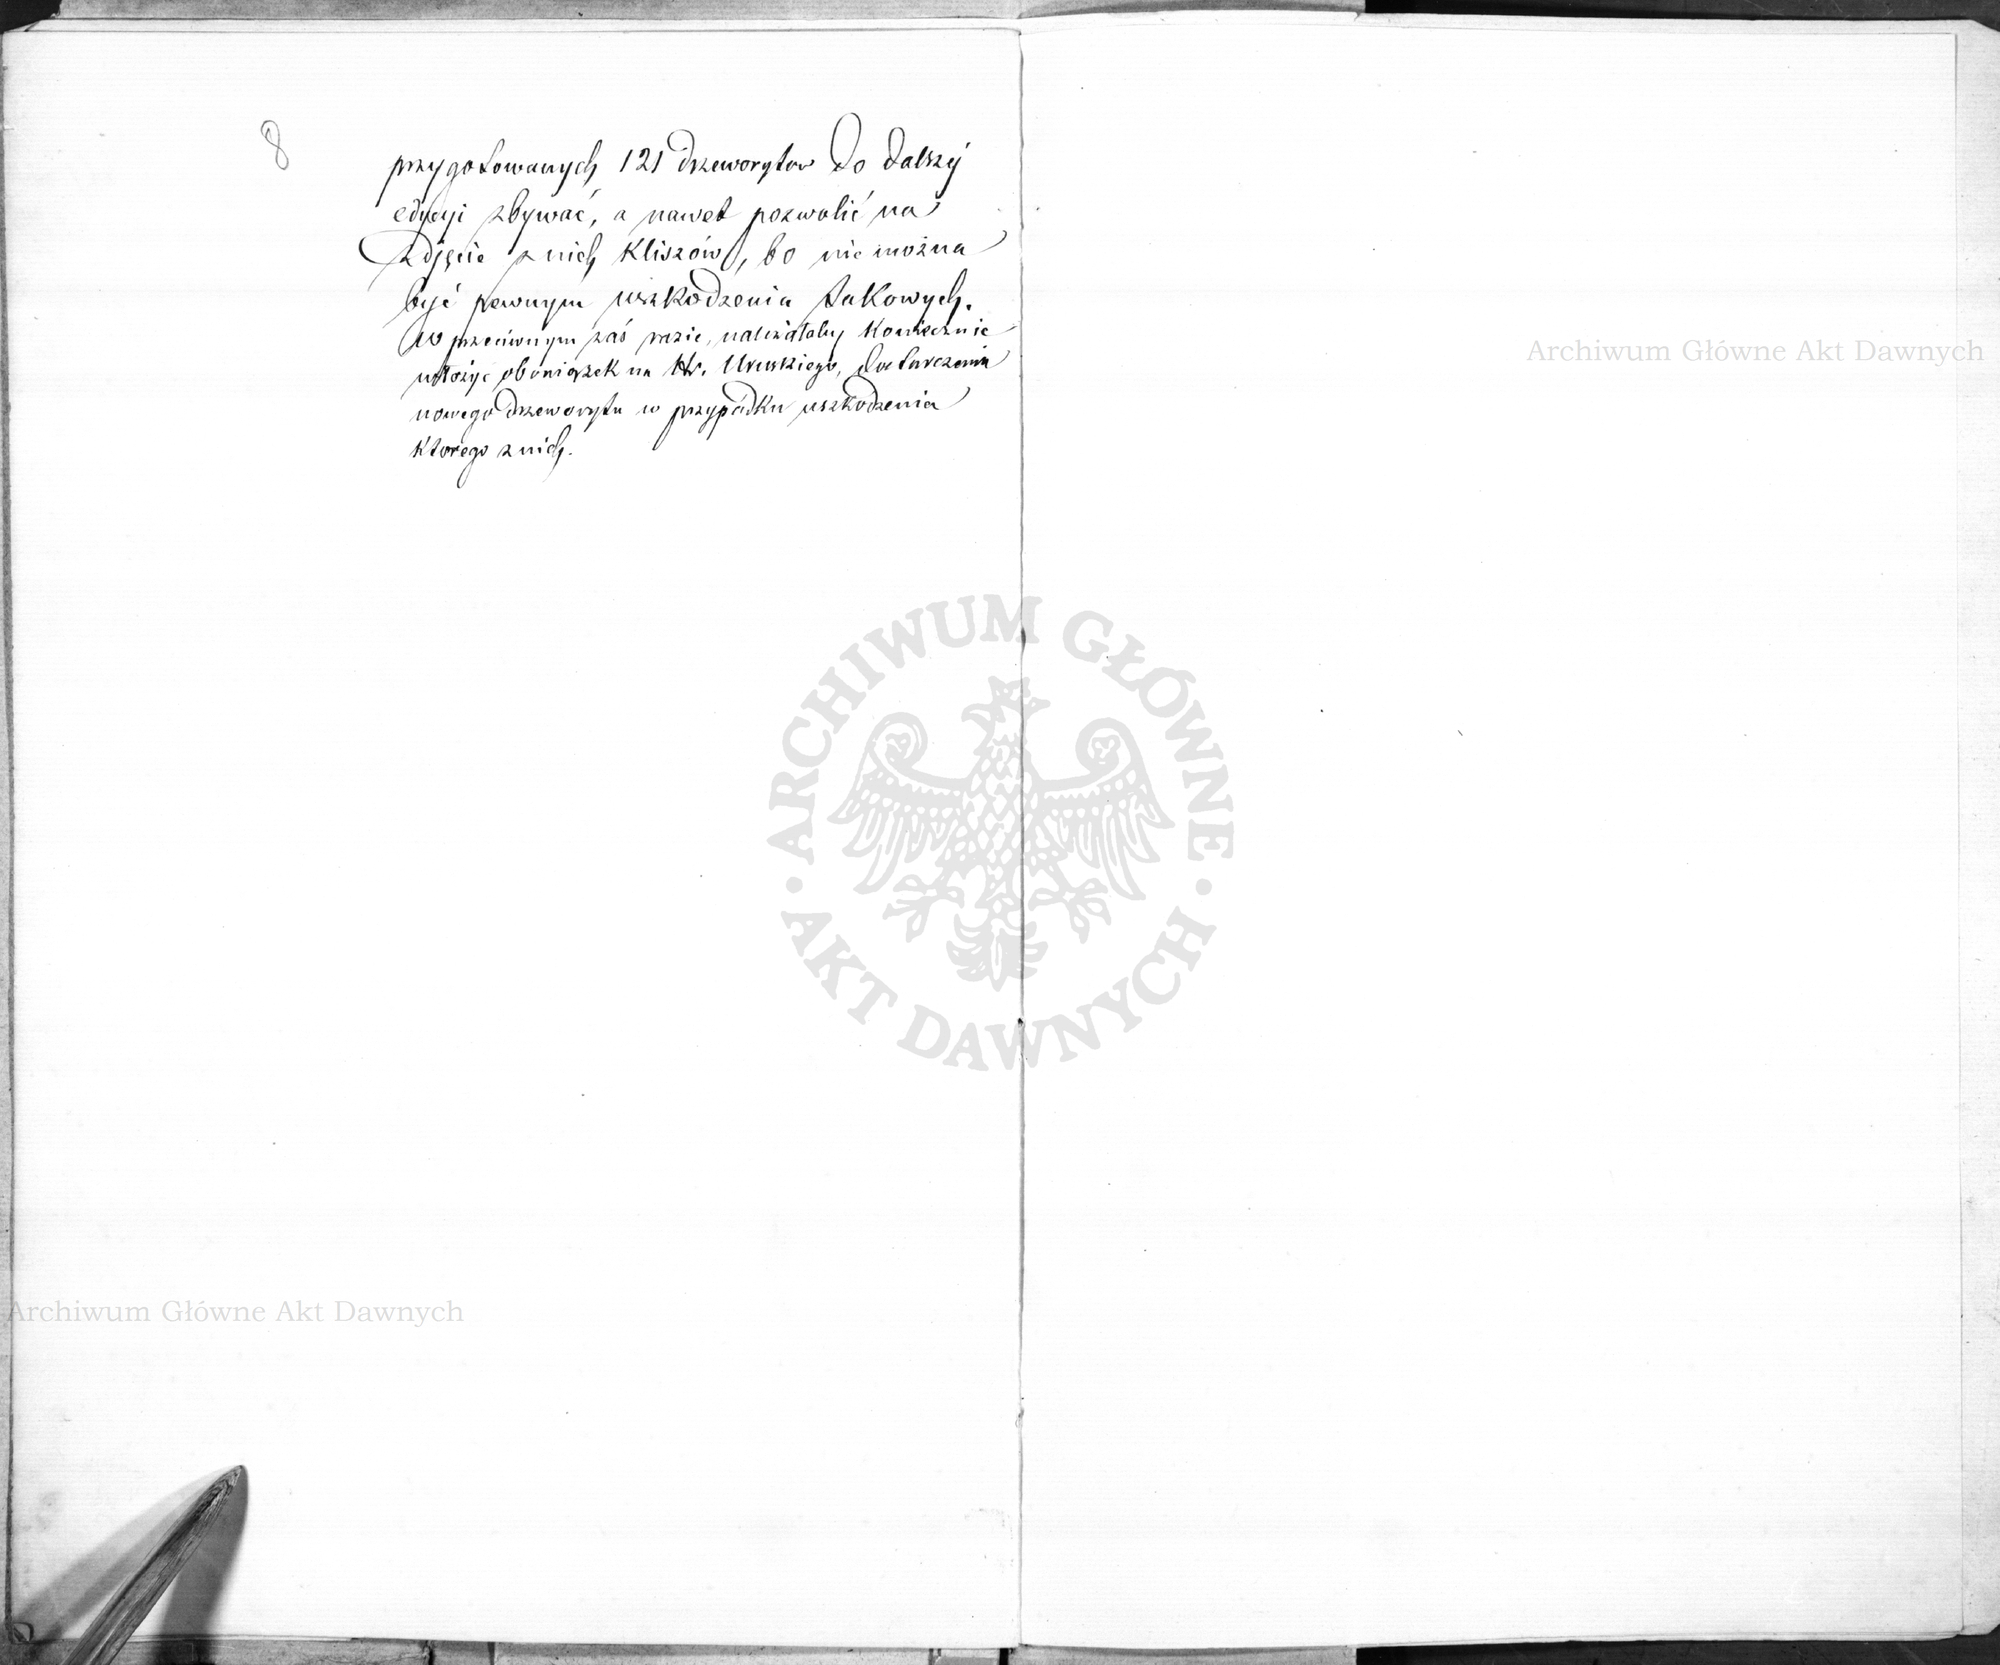 8
przygotowanych 121 drzeworytow do dalszéj
edycyi zbywać, a nawet pozwolić na
zdjęcie z nich Kliszów, bo nie można
być pewnym uszkodzenia takowych.
W przeciwnym zaś razie, należałoby koniecznie
włożyć obowiązek na Hr. Uruskiego, dostarczenia
nowego drzeworytu w przypadku uszkodzenia
ktorego z nich.
Archiwum Główne Akt Dawnych
ARCHIWUM GŁÓWNE AKT DAWNYCH
Archiwum Główne Akt Dawnych